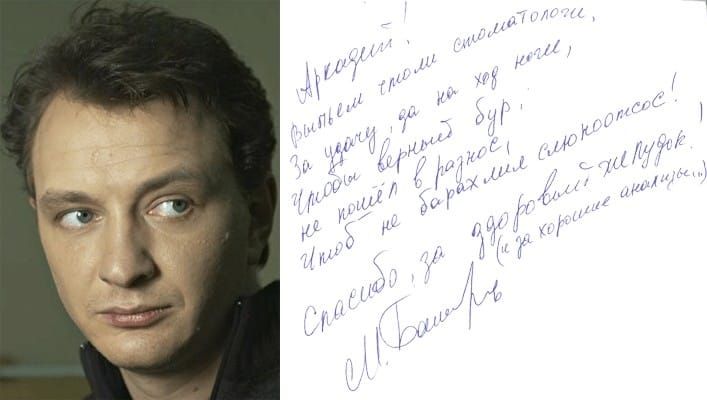 Аркадий!
Выпьем штоли стоматологи,
За удачу, да на ход ноги,
Чтобы верный бур,
не пошёл в разнос,
Чтоб не барахлил слюноотсос!
Спасибо, за здоровый желудок!
(и за хорошие анализы...)
М. Башаров